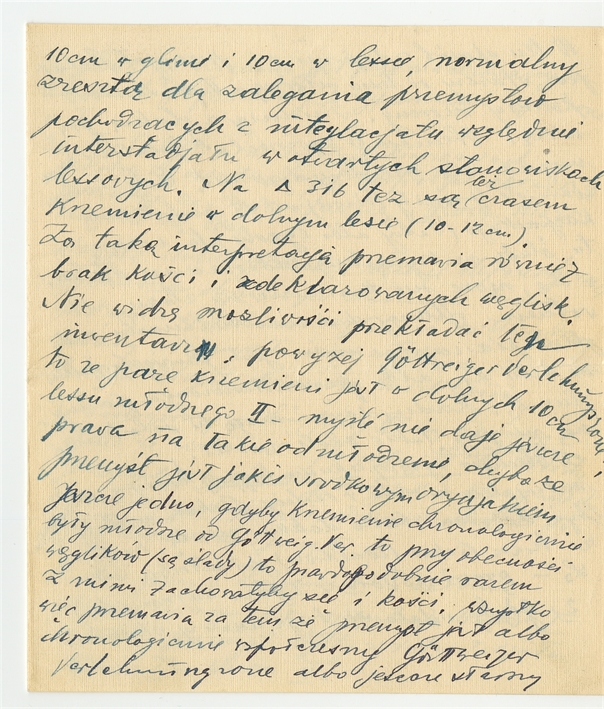 10 cm w glinie i 10 cm w lessie, normalny
zresztą dla zalegania przemysłów
pochodzących z interglacjału względnie
interstadjału w otwartych stanowiskach
lessowych. Na Δ 316 też są też czasem
Krzemienie w dolnym lesie (10-12 cm).
Za taką interpretacją przemawia również
brak kości i zdeklarowanych węglisk.
Nie widzę możliwości przekładać tego
inwentarza powyżej Göttweiger Verlehmungszone,
to że parę krzemieni jest w dolnych 10 cm
lessu młodszego II - myślę nie daje jeszcze
prawa na takie odmłodzenie, chyba że
przemysł jest jakiś środkowym oryniakiem
Jeszcze jedno, gdyby Krzemienie chronologicznie
były młodsze od Göttweig. Ver. to przy obecności
węglików (są ślady) to prawdopodobnie razem
z nimi zachowałyby się i kości. Wszystko
więc przemawia za tem że przemysł jest albo
chronologicznie współczesny Göttweiger
Verlehmungzone albo jeszcze starszy